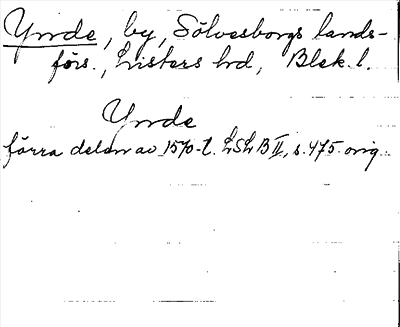 Ynde, by, Sölvesborgs lands-
förs., Listers hd, Blek. l.
Ynde
förra delen av 1570-t. LSLB II, s. 475. orig.